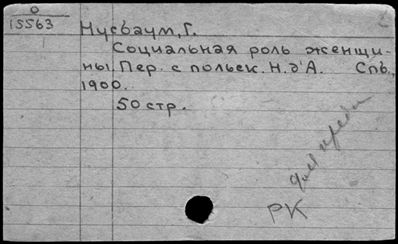 0
15563
Нусбаум, Г.
Социальная роль женщи-
ны. Пер. с польск. Н. д'А. Спб.,
1900.
50 стр.
РК